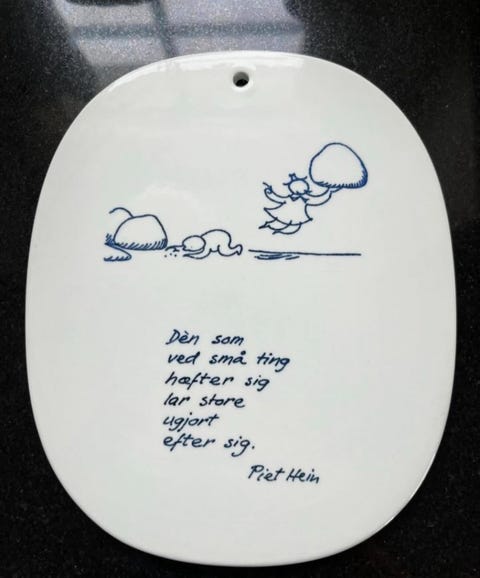 Dèn som
ved små ting
hæfter sig
lar store
ugjort
efter sig.
Piet Hein